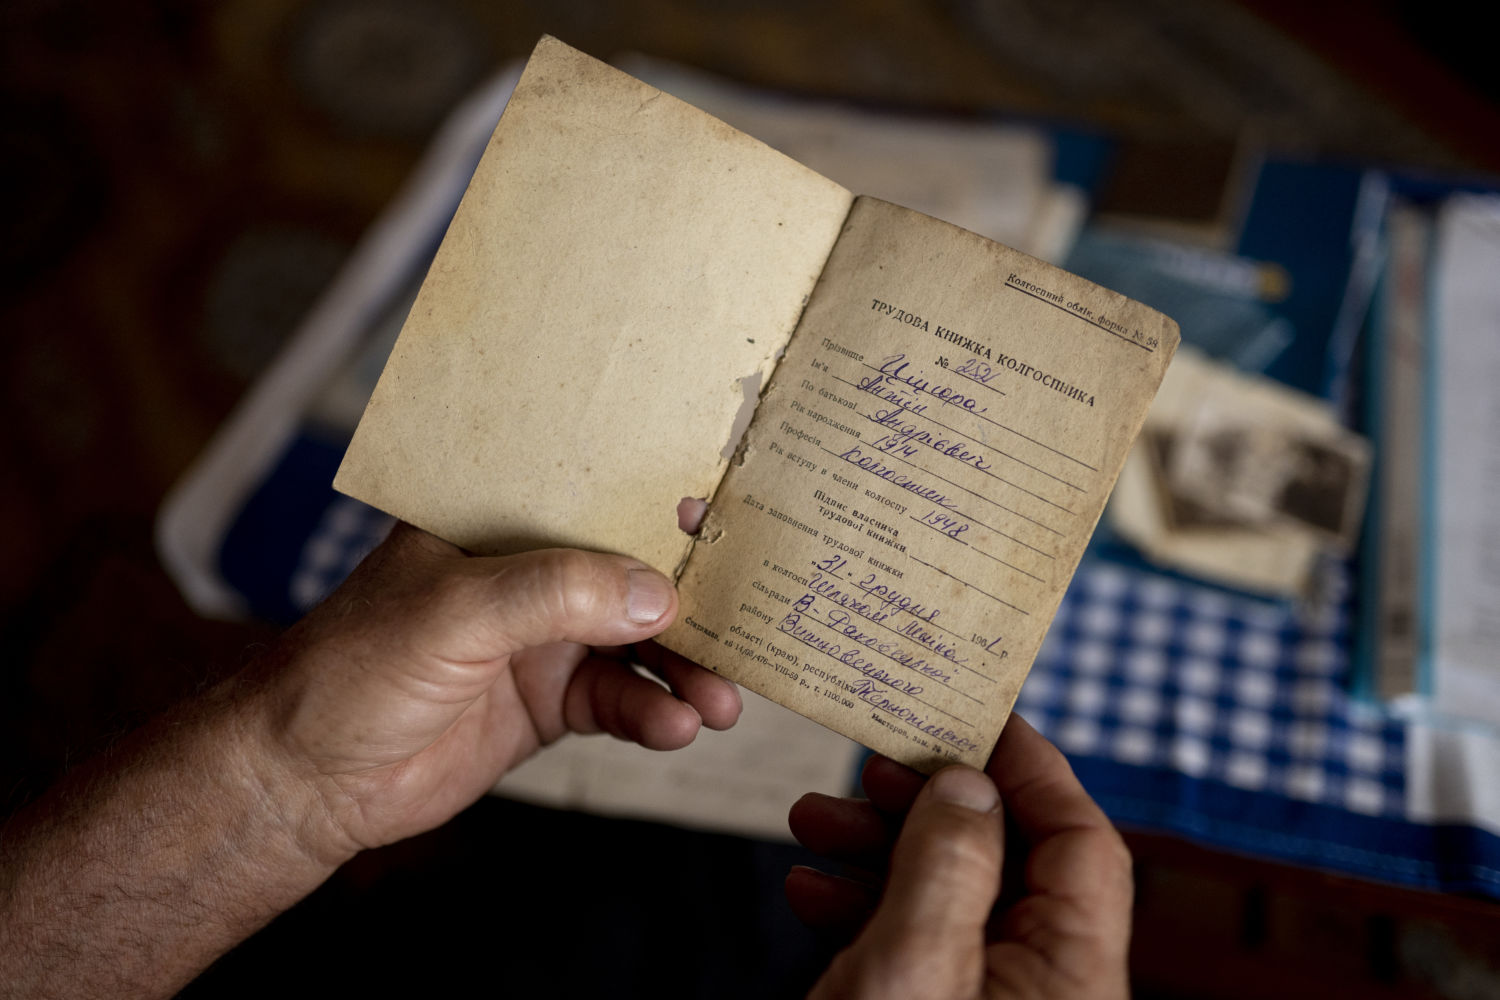 Колгоспний облік, форма № 58
ТРУДОВА КНИЖКА КОЛГОСПНИКА
№ 252
Прізвище Цішора
Ім'я Антін
По батькові Андрієвич
Рік народження 1914
Професія колгоспник
Рік вступу в члени колгоспу 1948
Підпис власника
трудової книжки
Дата заповнення трудової книжки
"31" грудня 1961 р.
в колгоспі Шляхом Леніна
сільради В-Раковецької
району Вишнівецького
області (краю), республіки Тернопільської
14/03/476—VIII-59 р., т. 1100,000
зам. №